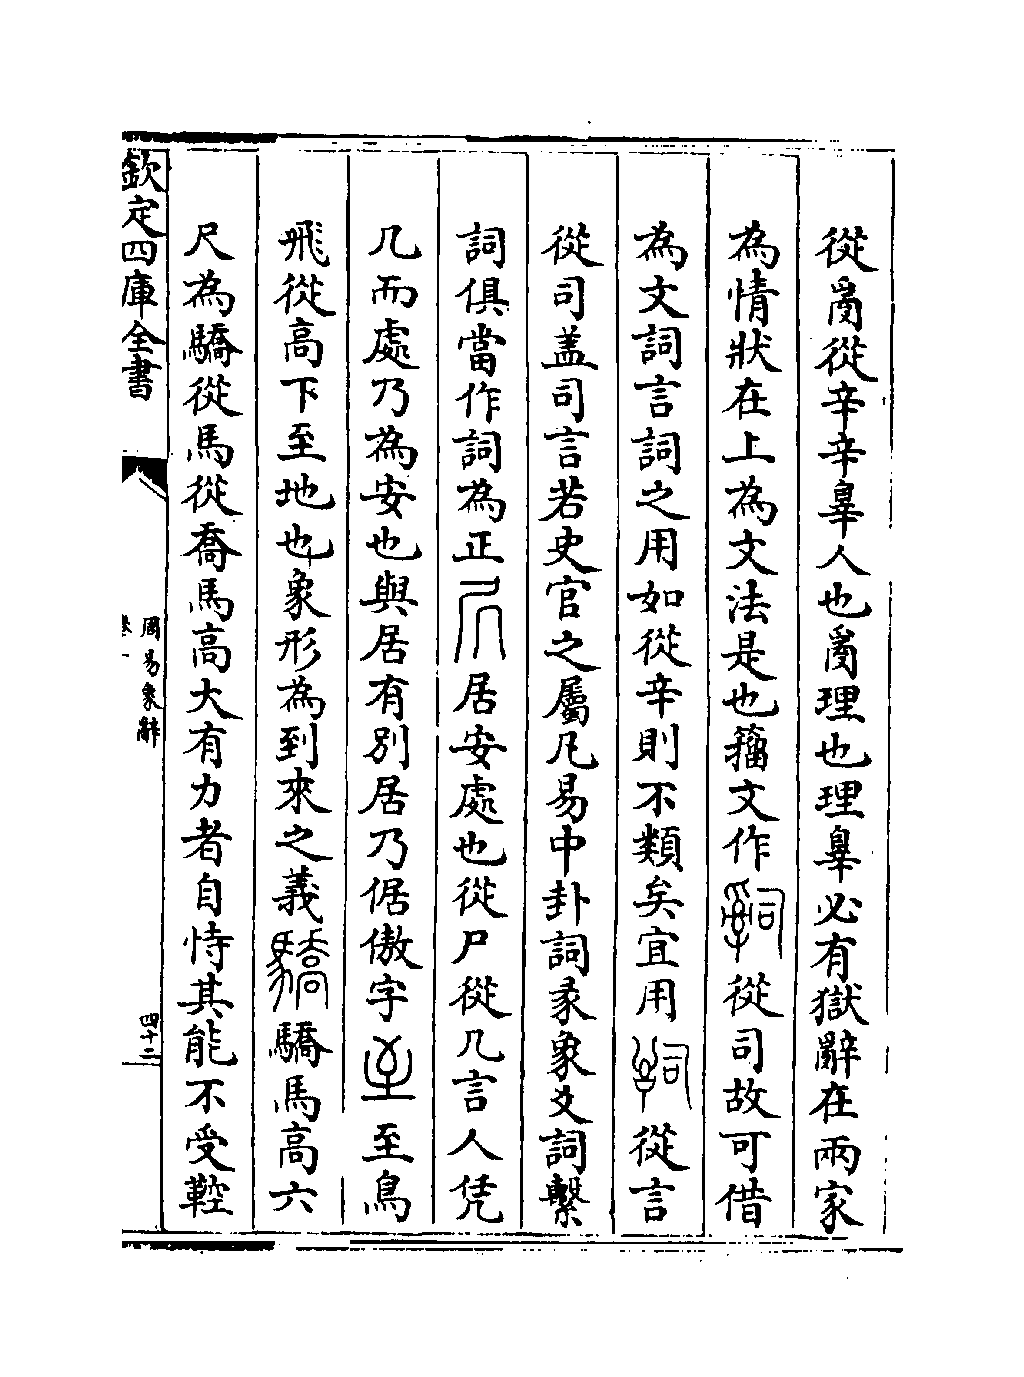 從𤔔從辛辛辠人也𤔔理也理辠必有獄辭在兩家
為情狀在上為文法是也籒文作從司故可借
為文詞言詞之用如從辛則不類矣宜用從言
從司盖司言若史官之屬凡易中卦詞彖象爻詞繫
詞俱當作詞為正居安處也從尸從几言人凭
几而處乃為安也與居有別居乃倨傲字至鳥
飛從高下至地也象形為到來之義驕馬高六
尺為驕從馬從喬馬高大有力者自恃其能不受鞚
欽定四庫全書
周易象辭
卷一
四十二